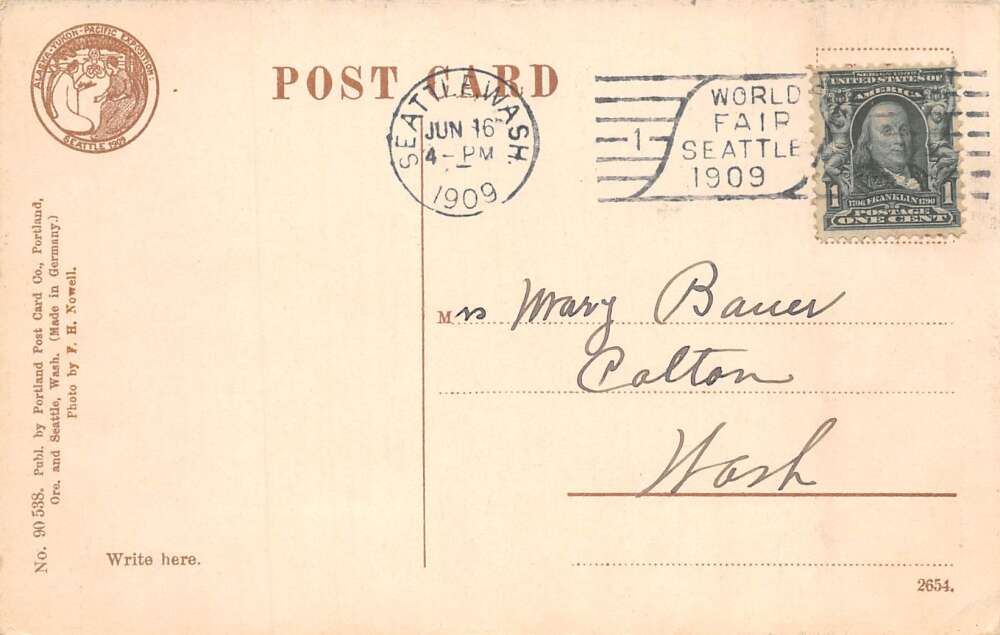 ALASKA-YUKON-PACIFIC EXPOSITION
SEATTLE 1909
POST CARD
SEATTLE, WASH.
JUN 16
4-PM
1909
1
WORLD
FAIR
SEATTLE
1909
SERIES 1902
UNITED STATES OF
AMERICA
1706 FRANKLIN 1790
1 POSTAGE 1
ONE CENT
No. 90 538. Publ. by Portland Post Card Co., Portland,
Ore. and Seattle, Wash. (Made in Germany.)
Photo by F. H. Nowell.
Mrs Mary Bauer
Colton
Wash
Write here.
2654.